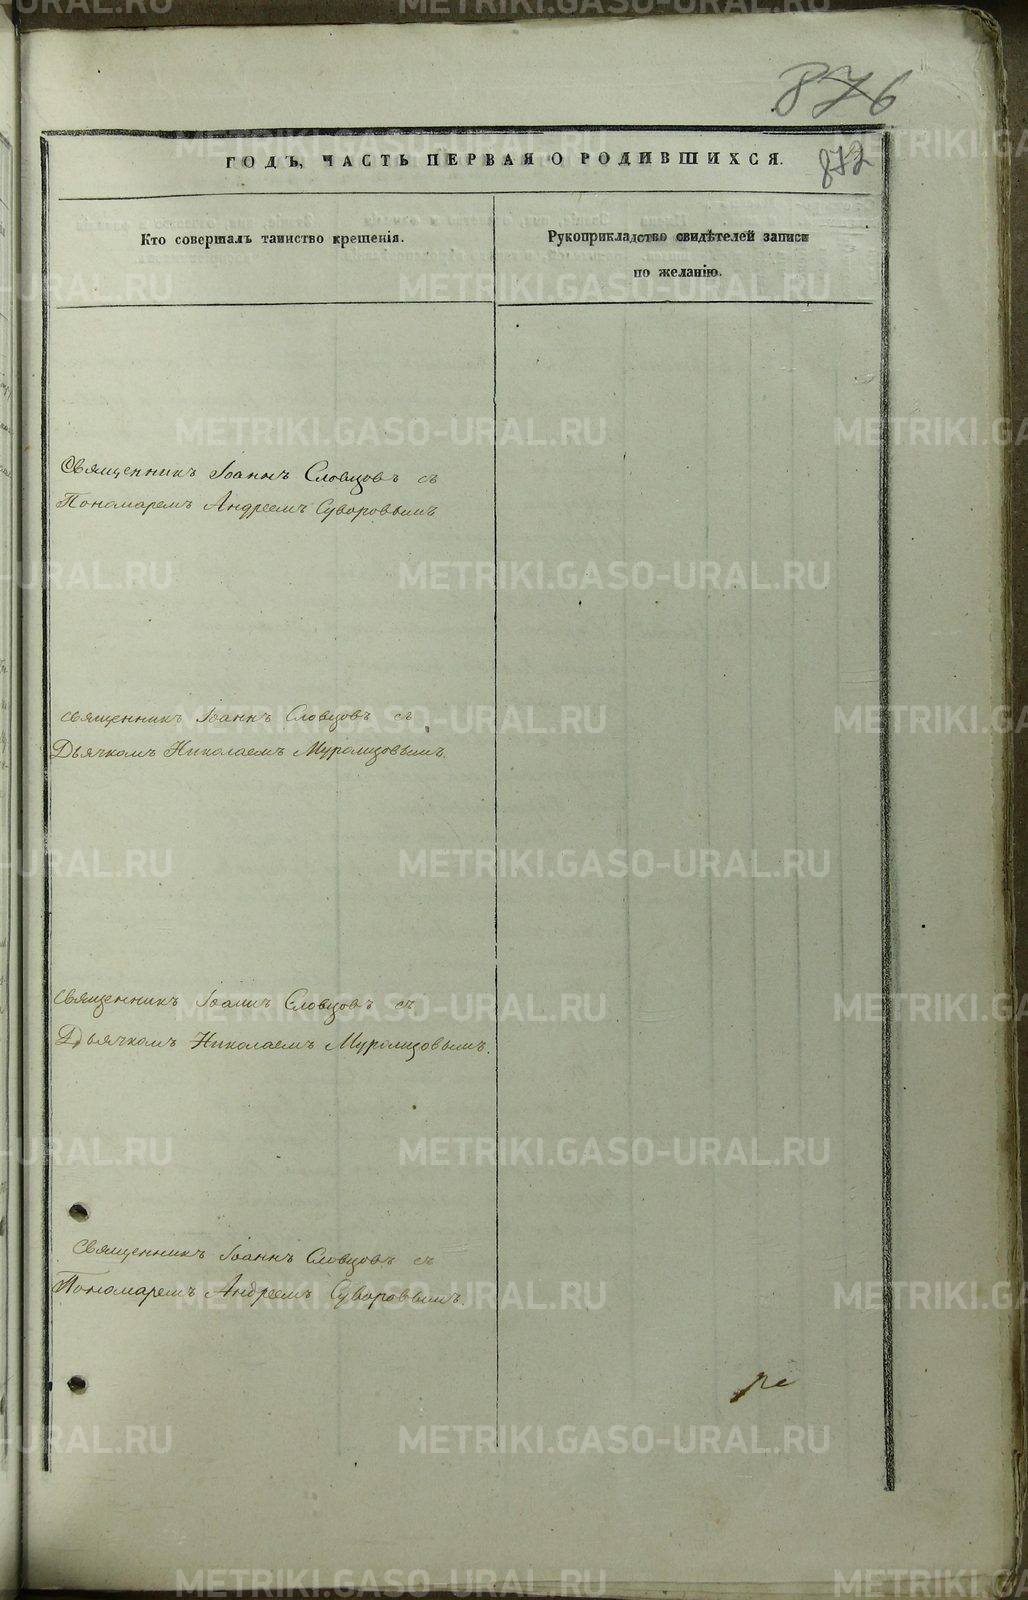 876
872
ГОДЪ, ЧАСТЬ ПЕРВАЯ О РОДИВШИХСЯ.
Кто совершалъ таинство крещенія.
Рукоприкладство свидѣтелей записи
по желанію.
Священникъ Іоаннъ Словцовъ съ
Пономаремъ Андреемъ Суворовымъ
Священникъ Іоаннъ Словцовъ съ
Дьячкомъ Николаемъ Муромцовымъ.
Священникъ Іоаннъ Словцовъ съ
Дьячкомъ Николаемъ Муромцовымъ.
Священникъ Іоаннъ Словцовъ съ
Пономаремъ Андреемъ Суворовымъ.
METRIKI.GASO-URAL.RU